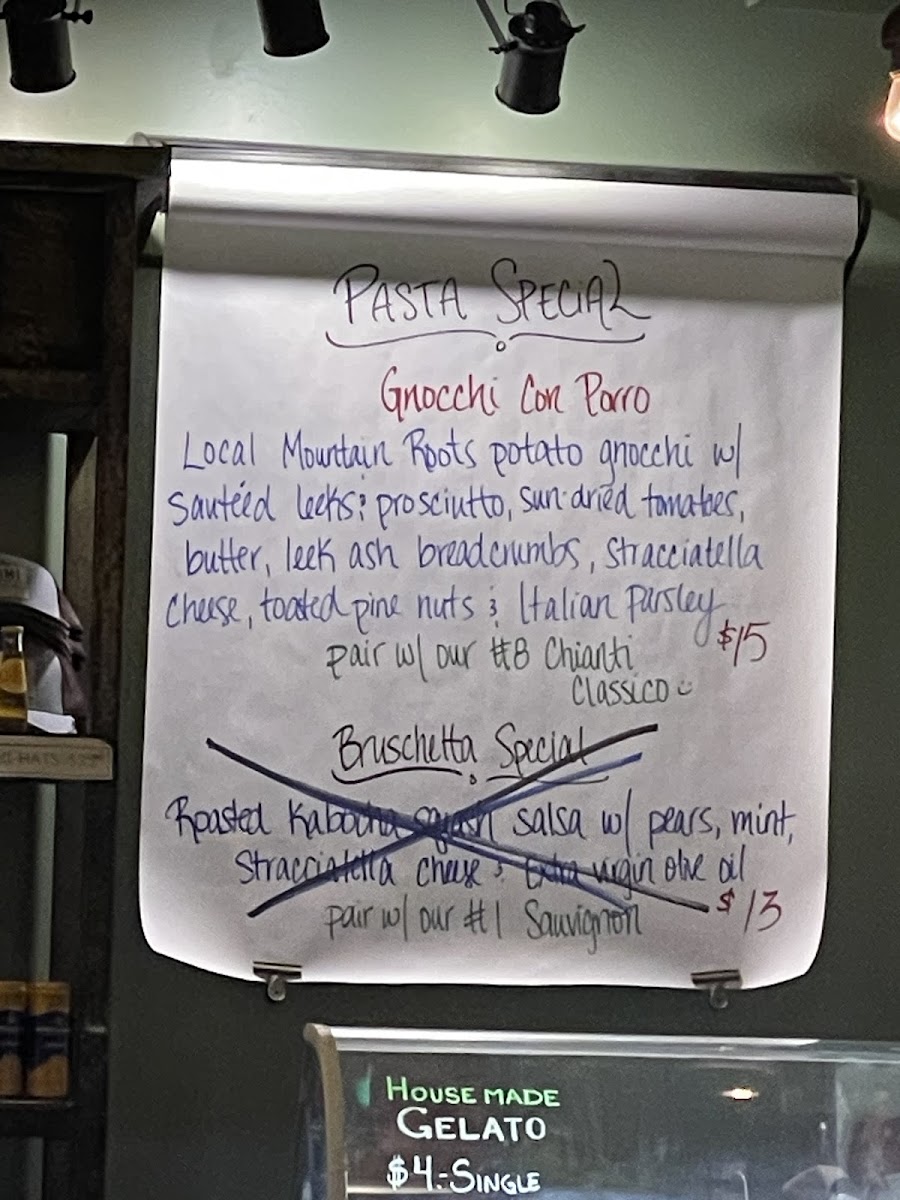 PASTA SPECIAL
Gnocchi Con Porro
Local Mountain Roots potato gnocchi w/
sautéed leeks & prosciutto, sun-dried tomatoes,
butter, leek ash breadcrumbs, stracciatella
cheese, toasted pine nuts & Italian Parsley
$15
pair w/ our #8 Chianti
Classico
Bruschetta Special
Roasted Kabocha squash salsa w/ pears, mint,
Stracciatella cheese & Extra virgin olive oil
$13
pair w/ our #1 Sauvignon
HATS
HOUSE MADE
GELATO
$4.-SINGLE